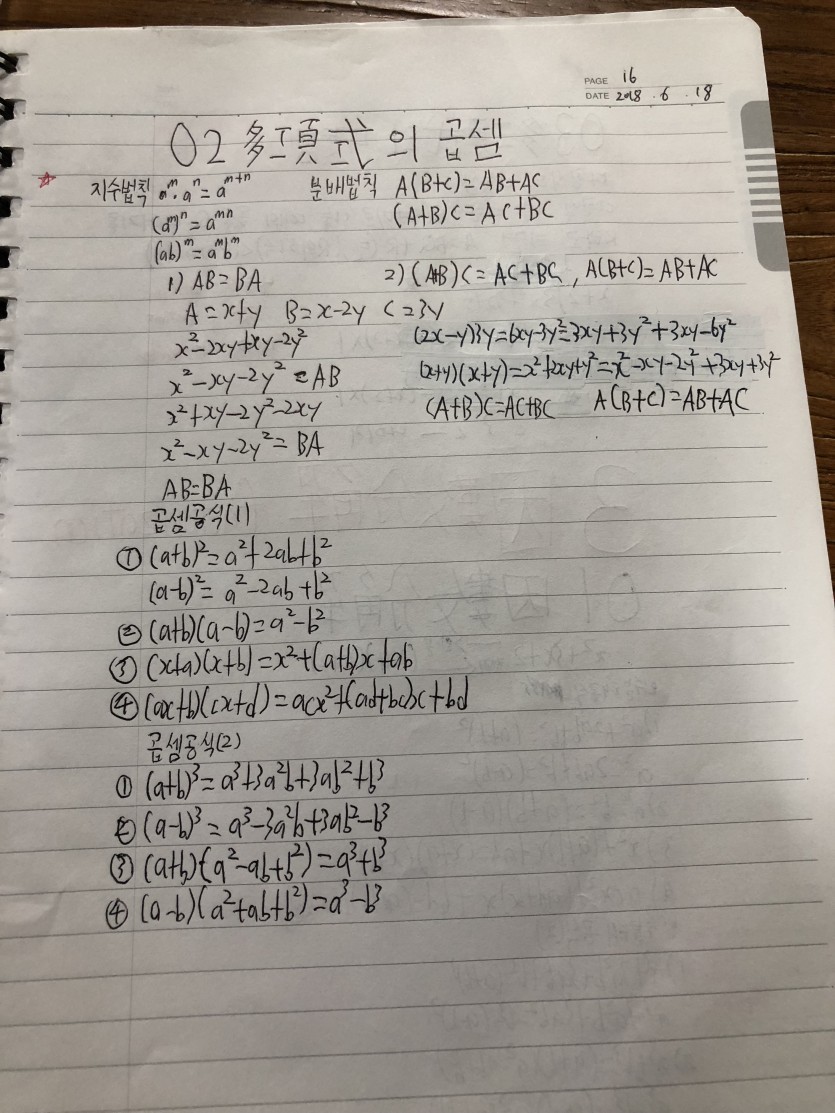 PAGE 16
DATE 2018 . 6 . 18
02 多項式의 곱셈
☆ 지수법칙 aᵐ·aⁿ=aᵐ⁺ⁿ 분배법칙 A(B+C)=AB+AC
(aᵐ)ⁿ=aᵐⁿ (A+B)C=AC+BC
(ab)ᵐ=aᵐbᵐ
1) AB=BA 2) (A+B)C=AC+BC, A(B+C)=AB+AC
A=x+y B=x-2y C=3y
x²-2xy+xy-2y² (2x-y)3y=6xy-3y²=3xy+3y²+3xy-6y²
x²-xy-2y²=AB (x+y)(x+y)=x²+2xy+y²=x²-xy-2y²+3xy+3y²
x²+xy-2y²-2xy (A+B)C=AC+BC A(B+C)=AB+AC
x²-xy-2y²=BA
AB=BA
곱셈공식(1)
① (a+b)²=a²+2ab+b²
(a-b)²=a²-2ab+b²
② (a+b)(a-b)=a²-b²
③ (x+a)(x+b)=x²+(a+b)x+ab
④ (ax+b)(cx+d)=acx²+(ad+bc)x+bd
곱셈공식(2)
① (a+b)³=a³+3a²b+3ab²+b³
② (a-b)³=a³-3a²b+3ab²-b³
③ (a+b)(a²-ab+b²)=a³+b³
④ (a-b)(a²+ab+b²)=a³-b³